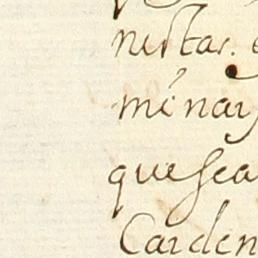 nistar.
minar
que sea
Carden